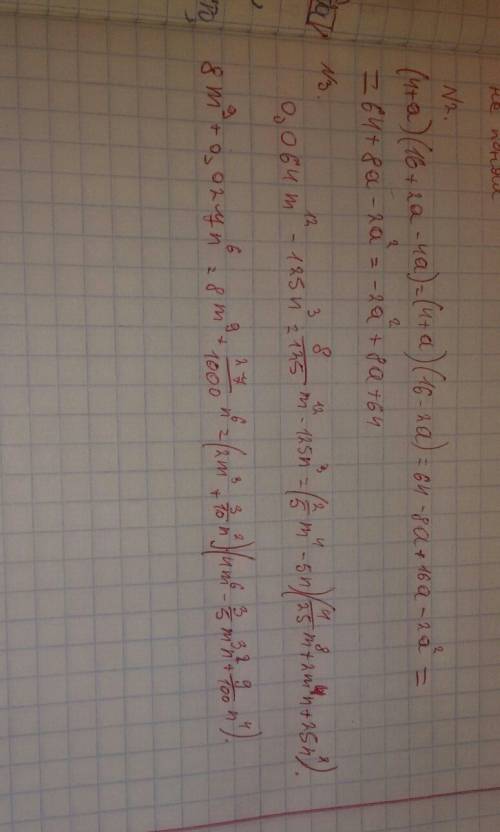 не понял
N2.
(4+a)(16+2a-4a)=(4+a)(16-2a)=64-8a+16a-2a²=
=64+8a-2a²=-2a²+8a+64
N3.
0,064m¹²-125n³=8/125 m¹²-125n³=(2/5 m⁴-5n)(4/25 m⁸+2m⁴n+25n²).
8m⁹+0,027n⁶=8m⁹+27/1000 n⁶=(2m³+3/10 n²)(4m⁶-3/5 m³n²+9/100 n⁴).